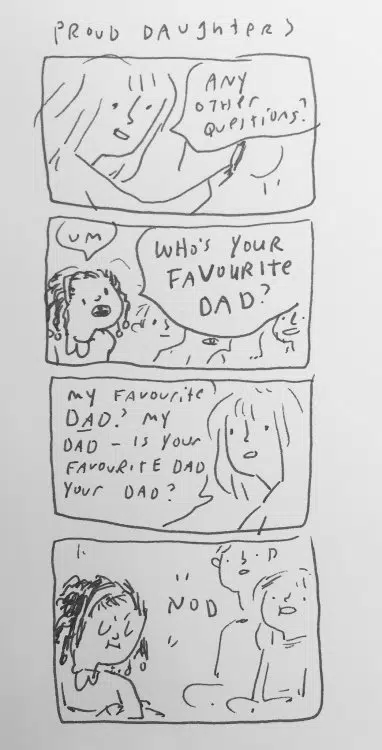 PROUD DAUGHTERS
ANY
OTHER
QUESTIONS?
UM
WHO'S YOUR
FAVOURITE
DAD?
MY FAVOURITE
DAD? MY
DAD – IS YOUR
FAVOURITE DAD
YOUR DAD?
NOD